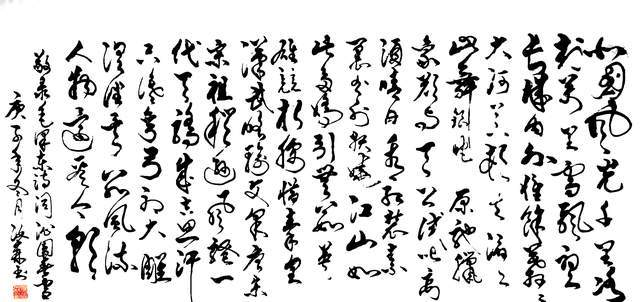 北国风光千里冰
封万里雪飘望
长城内外惟余莽莽
大河上下顿失滔滔
山舞银蛇原驰蜡
象欲与天公试比高
须晴日看红装素
裹分外妖娆江山如
此多娇引无数英
雄竞折腰惜秦皇
汉武略输文采唐宗
宋祖稍逊风骚一
代天骄成吉思汗
只识弯弓射大雕
俱往矣数风流
人物还看今朝
敬录毛泽东诗词沁园春雪
庚子年冬月